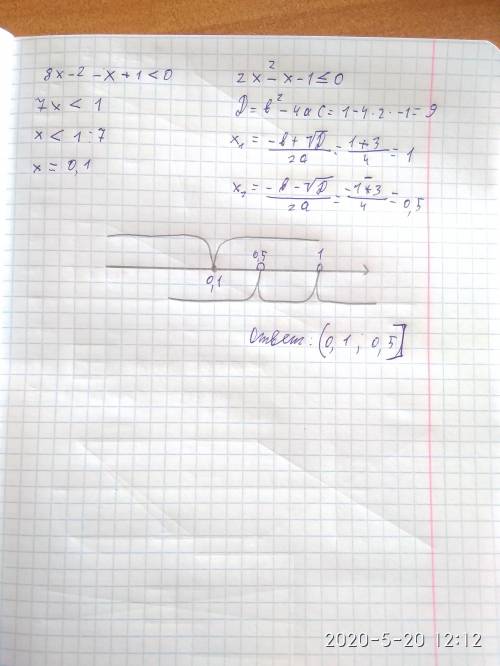 8x-2-x+1<0
7x<1
x<1:7
x=0,1
2x²-x-1≤0
D=b²-4ac=1-4·2·-1=9
x₁=(-b+√D)/2a=(1+3)/4=1
x₂=(-b-√D)/2a=(-1+3)/4=0,5
0,5 1
0,1
Ответ: (0,1; 0,5]
2020-5-20 12:12